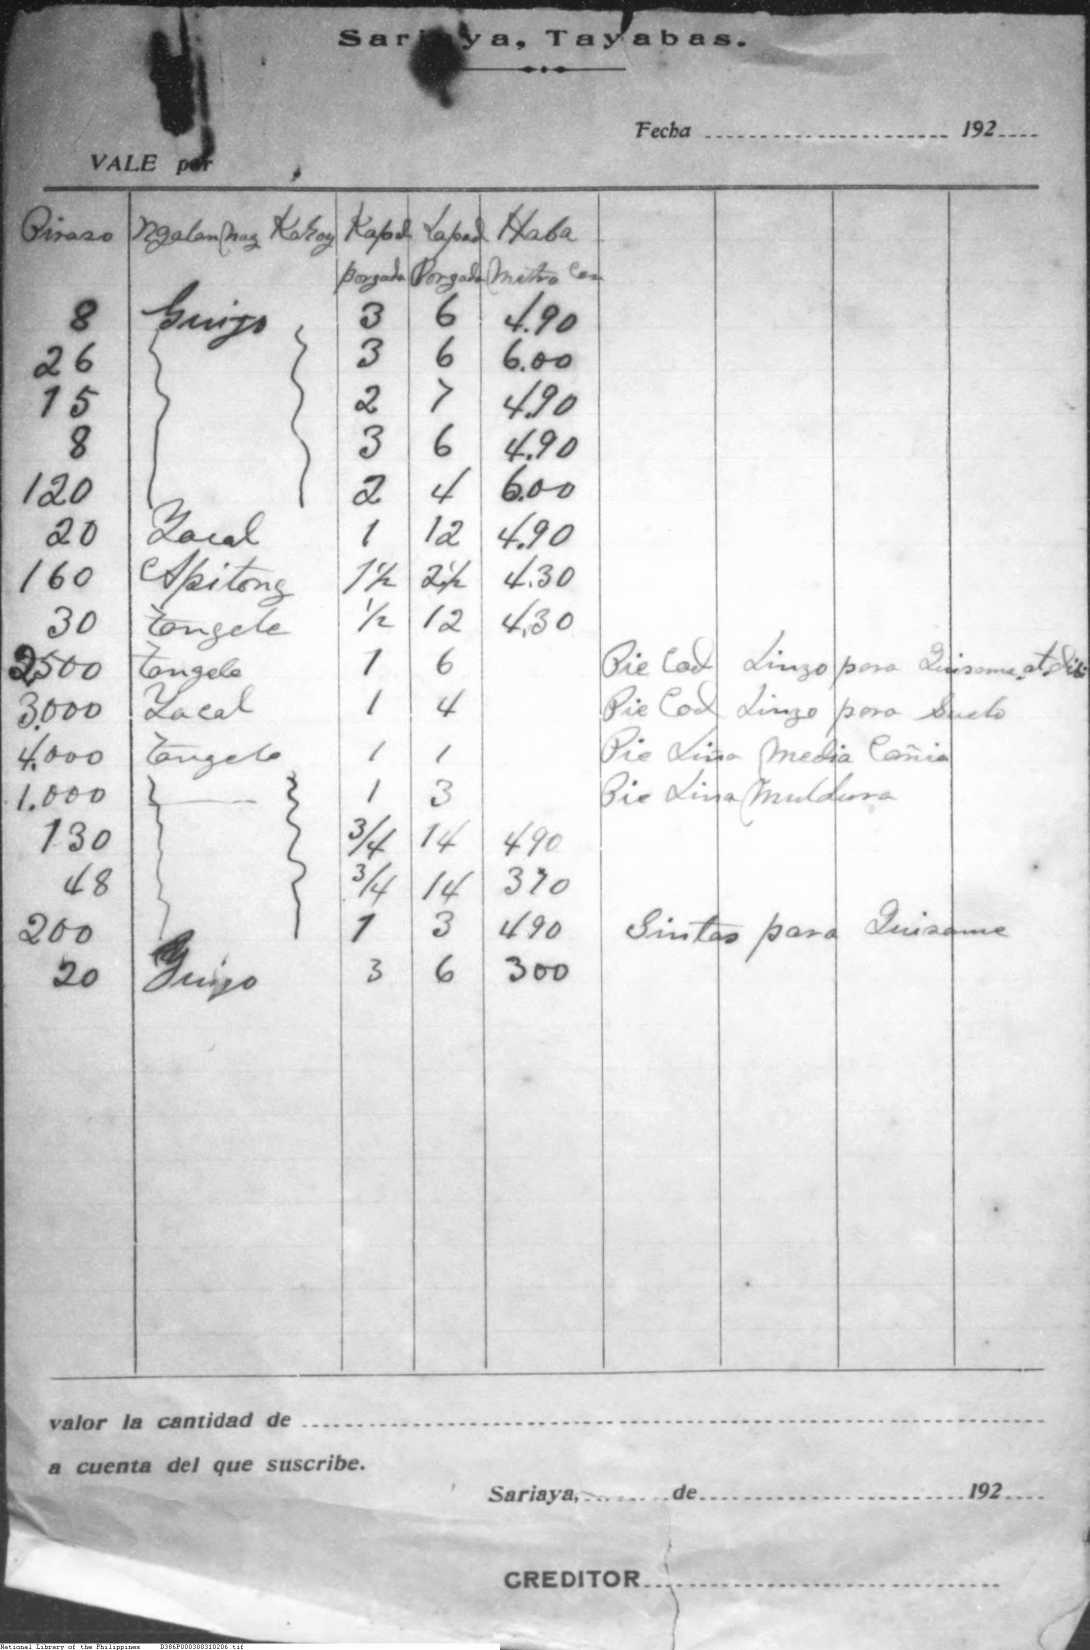 Sariaya, Tayabas.
Fecha 192
VALE por
Piraso Ngalan nag Kahoy Kapal Lapad Haba
porgada Porgada Metro Cen
8 Guijo 3 6 4.90
26 3 6 6.00
15 2 7 4.90
8 3 6 4.90
120 2 4 6.00
20 Yacal 1 12 4.90
160 Apitong 1½ 2½ 4.30
30 Tangele ½ 12 4.30
2500 Tangele 1 6 Pie Cad Linzo para Quisame at
3.000 Yacal 1 4 Pie Cad Linzo para Suelo
4.000 Tangele 1 1 Pie Liña Media Cañia
1.000 1 3 Pie Lina Muldura
130 3/4 14 490
48 3/4 14 370
200 1 3 490 Sintas para Quisame
20 Guijo 3 6 300
valor la cantidad de
a cuenta del que suscribe.
Sariaya, de 192
CREDITOR
National Library of the Philippines D386P000308310206.tif